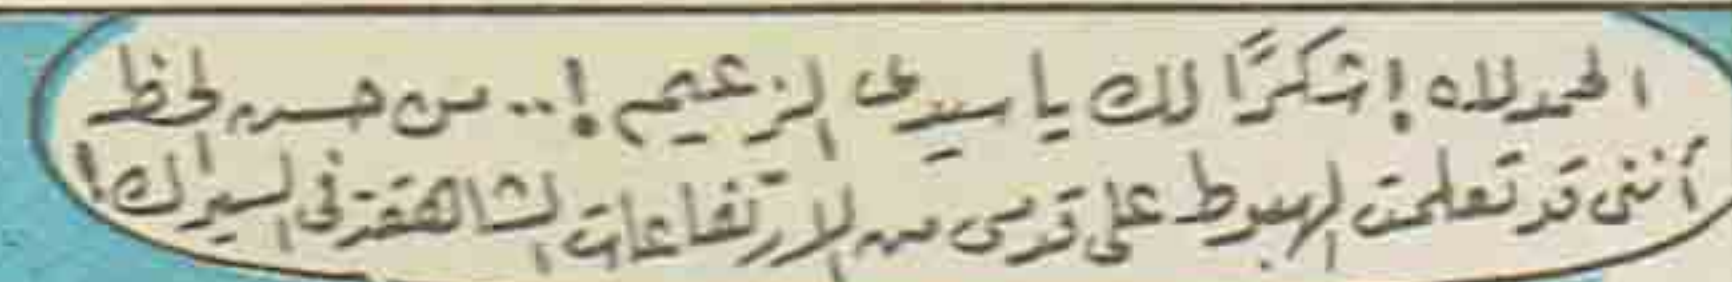 الحمد لله ! شكرًا لك يا سيدى الزعيم ! .. من حسن لحظ
أننى قد تعلمت الهبوط على قدمى من الارتفاعات الشاهقة فى السيرك !